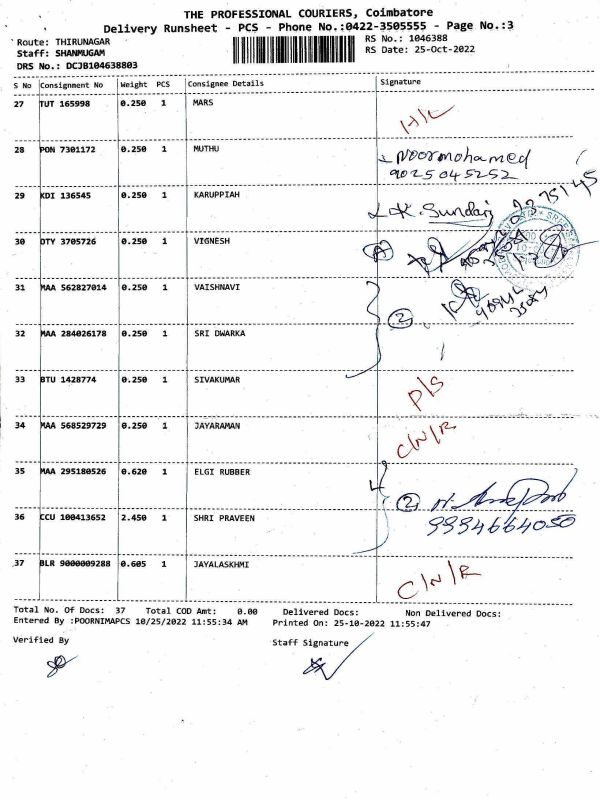 THE PROFESSIONAL COURIERS, Coimbatore
Delivery Runsheet - PCS - Phone No.:0422-3505555 - Page No.:3
Route: THIRUNAGAR
RS No.: 1046388
Staff: SHANMUGAM
RS Date: 25-Oct-2022
DRS No.: DCJB104638803
S No Consignment No Weight PCS Consignee Details Signature
27 TUT 165998 0.250 1 MARS H/L
28 PON 7301172 0.250 1 MUTHU Noormohamed
9025045252
29 KDI 136545 0.250 1 KARUPPIAH Sundari
30 OTY 3705726 0.250 1 VIGNESH
31 MAA 562827014 0.250 1 VAISHNAVI
32 MAA 284026178 0.250 1 SRI DWARKA 2
33 BTU 1428774 0.250 1 SIVAKUMAR P/S
34 MAA 568529729 0.250 1 JAYARAMAN C/N/R
35 MAA 295180526 0.620 1 ELGI RUBBER 2
36 CCU 100413652 2.450 1 SHRI PRAVEEN 9994664050
37 BLR 9000009288 0.605 1 JAYALASKHMI C/N/R
Total No. Of Docs: 37 Total COD Amt: 0.00 Delivered Docs: Non Delivered Docs:
Entered By :POORNIMAPCS 10/25/2022 11:55:34 AM Printed On: 25-10-2022 11:55:47
Verified By
Staff Signature